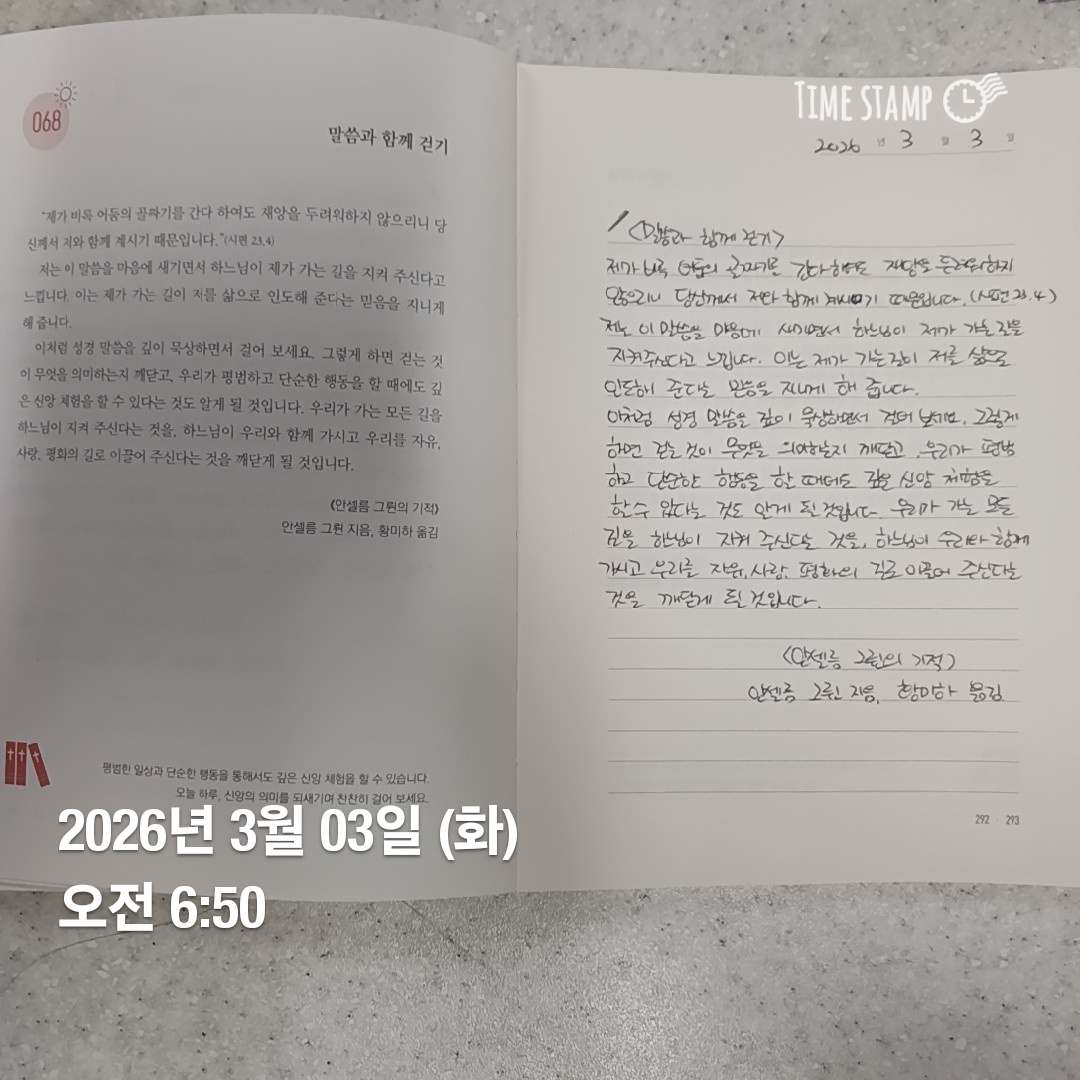 068
말씀과 함께 걷기
"제가 비록 어둠의 골짜기를 간다 하여도 재앙을 두려워하지 않으리니 당
신께서 저와 함께 계시기 때문입니다."(시편 23,4)
저는 이 말씀을 마음에 새기면서 하느님이 제가 가는 길을 지켜 주신다고
느낍니다. 이는 제가 가는 길이 저를 삶으로 인도해 준다는 믿음을 지니게
해 줍니다.
이처럼 성경 말씀을 깊이 묵상하면서 걸어 보세요. 그렇게 하면 걷는 것
이 무엇을 의미하는지 깨닫고, 우리가 평범하고 단순한 행동을 할 때에도 깊
은 신앙 체험을 할 수 있다는 것도 알게 될 것입니다. 우리가 가는 모든 길을
하느님이 지켜 주신다는 것을, 하느님이 우리와 함께 가시고 우리를 자유,
사랑, 평화의 길로 이끌어 주신다는 것을 깨닫게 될 것입니다.
《안셀름 그륀의 기적》
안셀름 그륀 지음, 황미하 옮김
평범한 일상과 단순한 행동을 통해서도 깊은 신앙 체험을 할 수 있습니다.
오늘 하루, 신앙의 의미를 되새기며 찬찬히 걸어 보세요.
TIME STAMP
2026 년 3 월 3 일
<말씀과 함께 걷기>
제가 비록 어둠의 골짜기를 간다 하여도 재앙을 두려워하지
않으리니 당신께서 저와 함께 계시기 때문입니다. (시편 23.4)
저는 이 말씀을 마음에 새기면서 하느님이 제가 가는 길을
지켜주신다고 느낍니다. 이는 제가 가는 길이 저를 삶으로
인도해 준다는 믿음을 지니게 해 줍니다.
이처럼 성경 말씀을 깊이 묵상하면서 걸어 보세요. 그렇게
하면 걷는 것이 무엇을 의미하는지 깨닫고, 우리가 평범
하고 단순한 행동을 할 때에도 깊은 신앙 체험을
할 수 있다는 것도 알게 될 것입니다. 우리가 가는 모든
길을 하느님이 지켜 주신다는 것을, 하느님이 우리와 함께
가시고 우리를 자유, 사랑, 평화의 길로 이끌어 주신다는
것을 깨닫게 될 것입니다.
<안셀름 그륀의 기적>
안셀름 그륀 지음, 황미하 옮김
292 · 293
2026년 3월 03일 (화)
오전 6:50